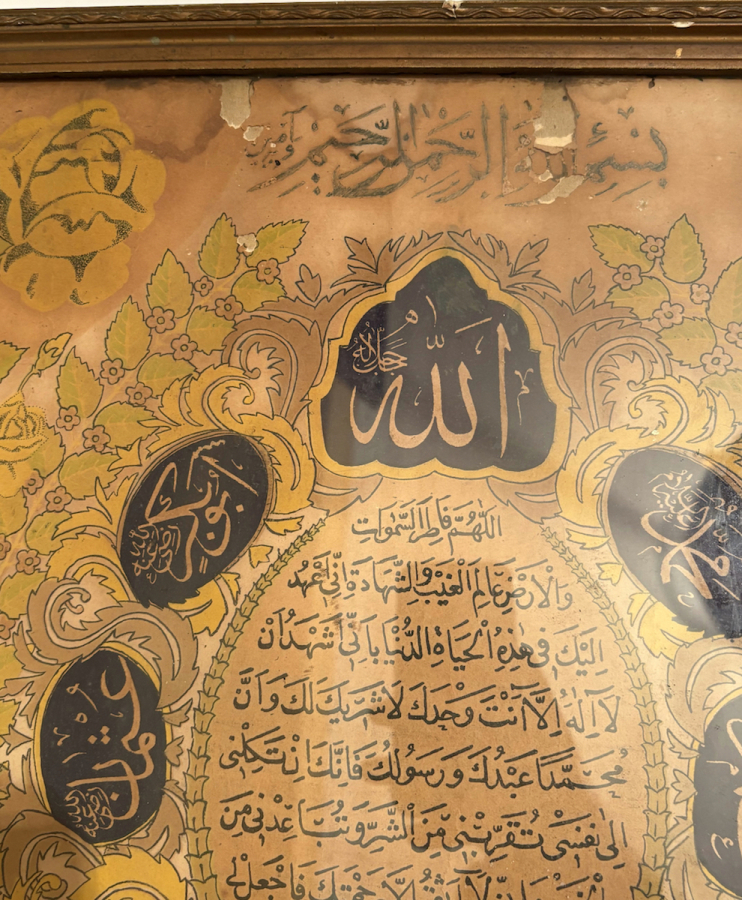 بِسْمِ اللهِ الرَّحْمٰنِ الرَّحِيْمِ
اَللّٰه جَلَّ جَلَالُهُ
مُحَمَّد
اَبُوبَكْر رَضِيَ اللهُ عَنْهُ
عُثْمَان رَضِيَ اللهُ عَنْهُ
اَللّٰهُمَّ فَاطِرَ السَّمٰوَاتِ
وَالْاَرْضِ عَالِمَ الْغَيْبِ وَالشَّهَادَةِ اِنِّى اَعْهَدُ
اِلَيْكَ فِى هٰذِهِ الْحَيَاةِ الدُّنْيَا بِاَنِّى اَشْهَدُ اَنْ
لَا اِلٰهَ اِلَّا اَنْتَ وَحْدَكَ لَا شَرِيْكَ لَكَ وَاَنَّ
مُحَمَّدًا عَبْدُكَ وَرَسُولُكَ فَاِنَّكَ اِنْ تَكِلْنِى
اِلٰى نَفْسِى تُقَرِّبْنِى مِنَ الشَّرِّ وَتُبَاعِدْنِى مِنَ